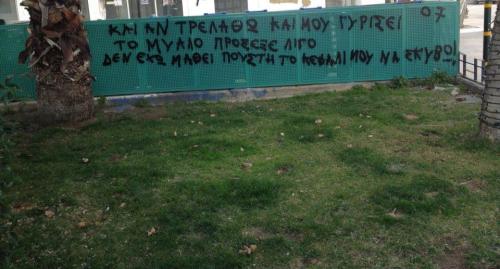 ΚΑΙ ΑΝ ΤΡΕΛΑΘΩ ΚΑΙ ΜΟΥ ΓΥΡΙΣΕΙ 07
ΤΟ ΜΥΑΛΟ ΠΡΟΣΕΞΕ ΛΙΓΟ
ΔΕΝ ΕΧΩ ΜΑΘΕΙ ΠΟΥΣΤΗ ΤΟ ΚΕΦΑΛΙ ΜΟΥ ΝΑ ΣΚΥΒΩ!